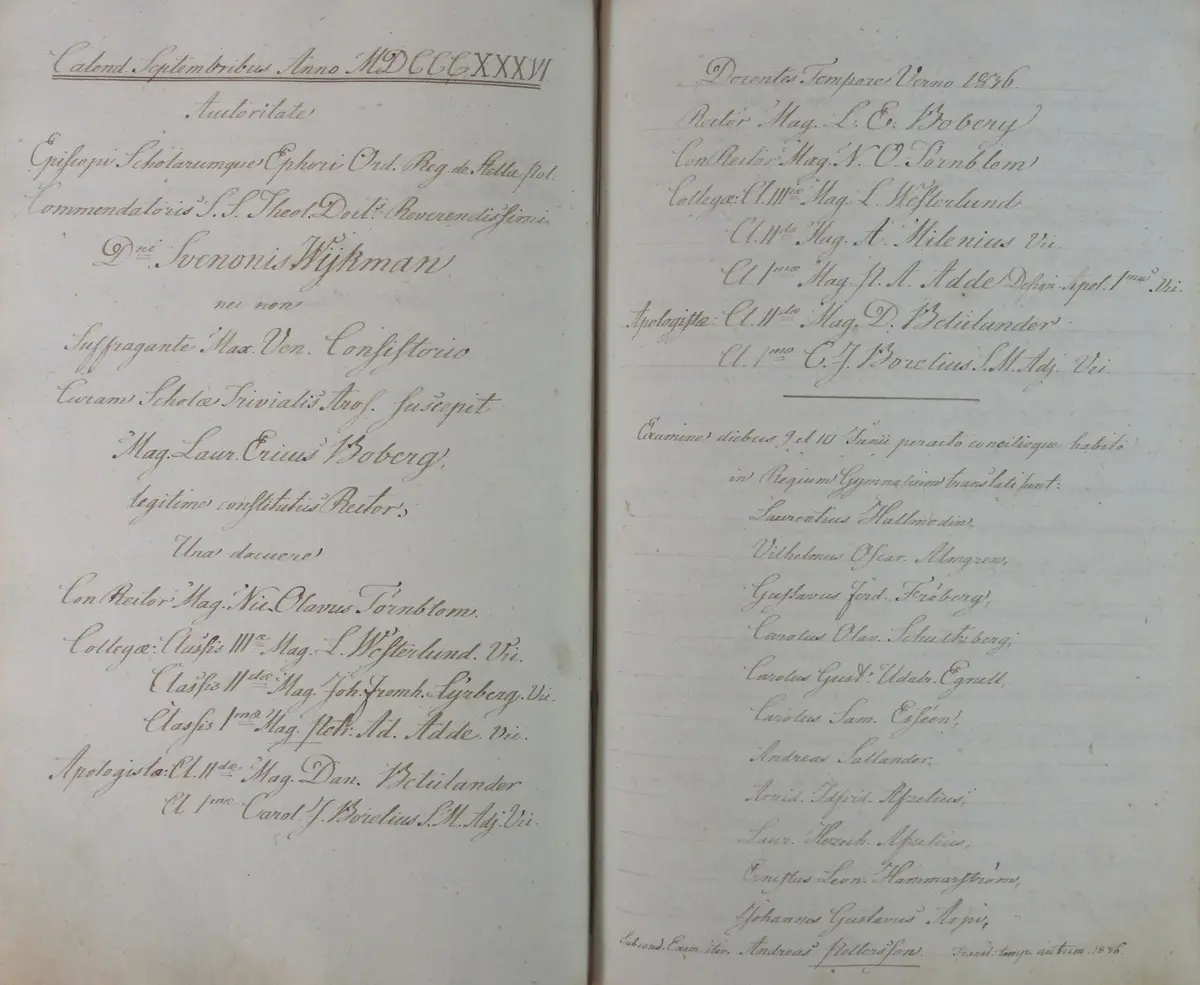 Calend. Septembribus Anno MDCCCXXXVI
Autoritate
Episcopi Scholarumque Ephori Ord. Reg. de Stella pol.
Commendatoris S. S. Theol. Doct:s Reverendissimi
Dni Svenonis Wijkman
nec non
Suffragante Max. Ven. Consistorio
Curam Scholæ Trivialis Aros. suscepit
Mag. Laur. Ericus Boberg,
legitime constitutus Rector,
Una docuere
Con Rector Mag. Nic. Olavus Törnblom.
Collegæ: Classis IIIæ Mag. L. Westerlund. Vic.
Classis IIdæ Mag. Joh. Fromh. Cyrberg. Vic.
Classis Imæ Mag. Petr. Ad. Adde. Vic.
Apologistæ: Cl. IIdæ Mag. Dan. Betulander
Cl Imæ Carol J. Borelius S. M. Adj. Vic.
Docentes Tempore Verno 1836.
Rector Mag. L. E. Boberg
Con Rector Mag. N. O. Törnblom
Collegæ: Cl. IIIæ Mag. L. Westerlund
Cl. IIdæ Mag. A. Milenius Vic.
Cl Imæ Mag. P. A. Adde Design. Apol. Imus. Vic.
Apologistæ: Cl. IIdæ Mag. D. Betulander
Cl. Imæ C. J. Borelius S. M. Adj. Vic.
Examine diebus 9 et 10 Junii peracto concilioque habito
in Regium Gymnasium translati sunt:
Laurentius Hallmodin,
Vilhelmus Oscar. Almgren,
Gustavus Ferd. Fröberg,
Carolus Olav. Schultzberg,
Carolus Gust. Udalr. Egnell,
Carolus Sam. Esséen,
Andreas Sallander,
Arvid. Idfrid. Afzelius,
Laur. Hezech. Afzelius,
Ernestus Leon. Hammarström,
Johannes Gustavus Arpi,
Subeund. Exam. iter. Andreas Pettersson. Transl. temp. autum. 1836.